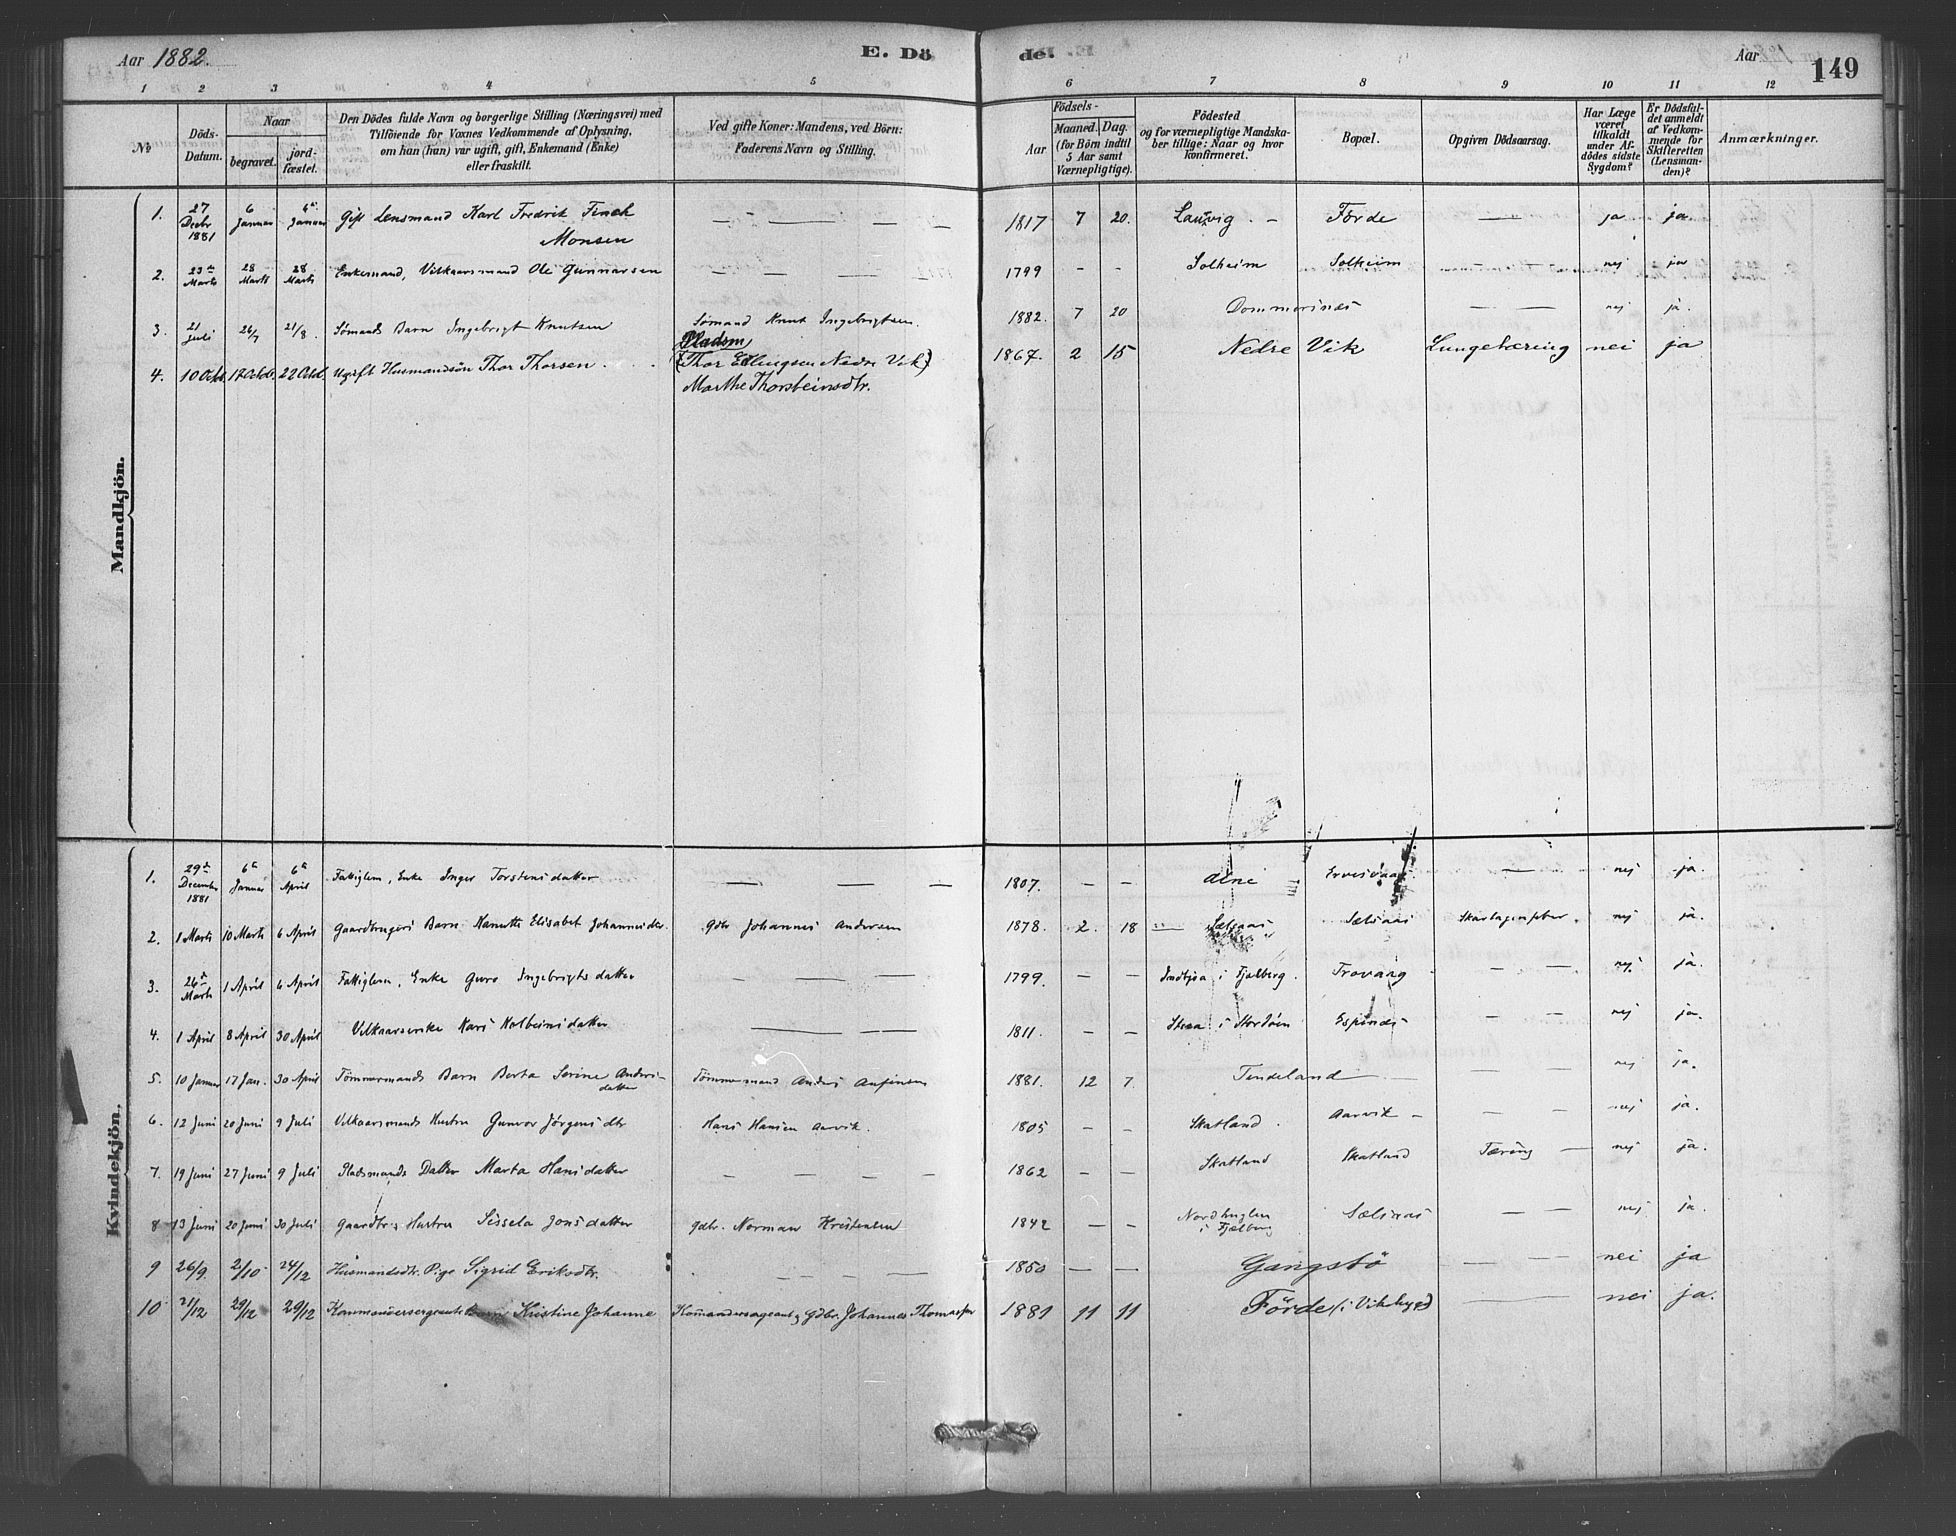 Aar 1882. E. Dö
de. Aar 149
1 2 3 4 5 6 7 8 9 10 11 12
№
Döds-Datum.
Naar
begravet.
jord-fæstet.
Den Dödes fulde Navn og borgerlige Stilling (Næringsvei) med
Tilföiende for Voxnes Vedkommende af Oplysning,
om han (hun) var ugift, gift, Enkemand (Enke)
eller fraskilt.
Ved gifte Koner: Mandens, ved Börn:
Faderens Navn og Stilling.
Födsels-
Aar
Maaned. Dag.
(for Börn indtil
5 Aar samt
Værnepligtige).
Födested
og for værnepligtige Mandska-
ber tillige: Naar og hvor
konfirmeret.
Bopæl.
Opgiven Dödsaarsag.
Har Læge
været
tilkaldt
under Af-
dödes sidste
Sygdom?
Er Dödsfal-
det anmeldt
af Vedkom-
mende for
Skifteretten
(Lensman-
den)?
Anmærkninger.
Mandkjön.
1. 27 Decbr 1881 6 Januar 6 Januar Gift Lensmand Karl Fredrik Finck Monsen — — — — 1817 7 20. Laurvig. - Förde — ja ja.
2. 23de Marts 28 Marts 28 Marts Enkemand, Vilkaarsmand Ole Gunnarsen — — — — 1799 - - Solheim Solheim — — nej ja
3. 21 Juli 26/7 21/8. Sömands Barn Ingebrigt Knutsen Sömand Knut Ingebrigtsen. 1882. 7 20 Dommersnes — — nej ja.
4. 10 Octb. 17 Octb. 22 Octb. Ugift Husmandsön Thor Thorsen . . Pladsm (Thor Ellingsen Nedre Vik) Marthe Thorsteinsdtr. 1867. 2 15 Nedre Vik Lungetæring nei ja
Kvindekjön.
1. 29de December 1881 6te Januar 6te April Fattiglem, Enke Inger Torstensdatter — — — 1807. — — — nej ja.
2. 1 Marts 10 Marts 6 April Gaardbrugers Barn Johannesdtr. Gdbr Johannes Andersen 1878. 2. 18 Sælsaas Sælsaas Skarlagensfeber. nej ja.
3. 26de Marts 1 April 6 April Fattiglem, Enke Guro Ingebrigtsdatter — — — 1799. — — i Fjelberg. Trovaag — — nej. ja.
4. 1 April 8 April 30 April Vilkaarsenke Kari Kolbeinsdatter — — — 1811. — — i Stordöen Espenes — — nej ja.
5. 10 Januar 17 Jan. 30 April Tömmermands Barn Berta Serine Andersdatter Tömmermand Anders 1881. 12 7. Tindeland — — nej ja.
6. 12 Juni 20 Juni 9 Juli Vilkaarsmands Hustru Gunvor Jörgensdtr Hans Hansen Aarvik. 1805 — — Skatland. Aarvik — — — nej ja.
7. 19 Juni 27 Juni 9 Juli Pladsmands Datter Marta Hansdatter — — — 1862 — — Skatland Skatland Tæring — nej ja.
8 13 Juni 20 Juni 30 Juli Gaardbr Hustru Sissela Jonsdatter Gdbr. Norman Kristensen 1842 — — Nordhuglen i Fjelberg Sælsaas — — nej ja.
9 26/9. 2/10 24/12 Husmandsdtr. Pige Sigrid Eriksdtr. — — — 1850 — — Gangstö — — nei ja
10 21/12 29/12 29/12 Kommandersergeants Barn Kristine Johanne Komandersergeant & Gdbr. Johannes 1881 11 11 Förde (i Vikebygd) — nei ja.